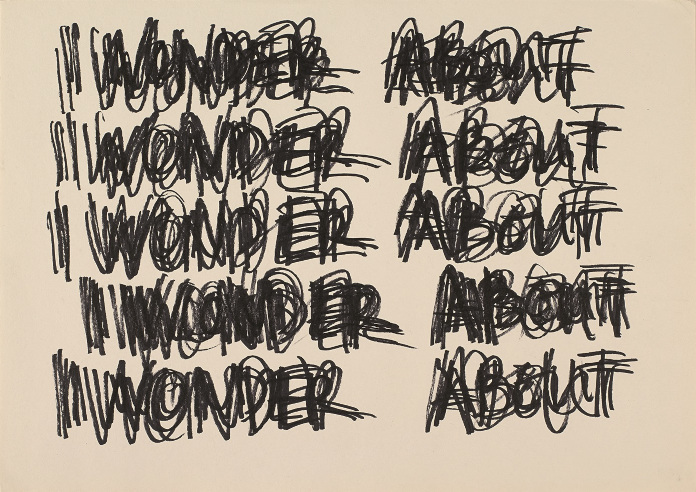 I WONDER ABOUT
I WONDER ABOUT
I WONDER ABOUT
I WONDER ABOUT
I WONDER ABOUT